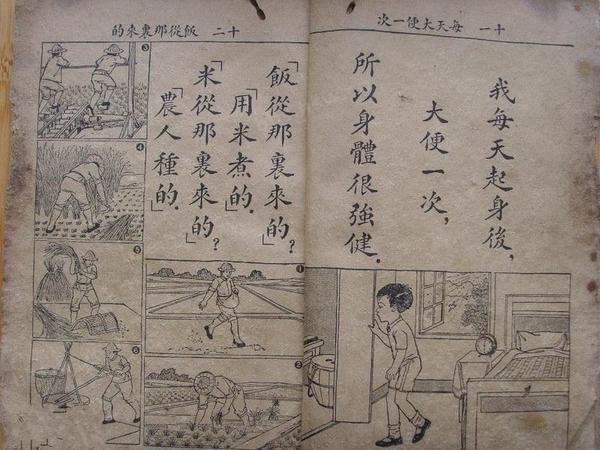 十一 每天大便一次
我每天起身後，
大便一次，
所以身體很強健．
十二 飯從那裏來的
「飯從那裏來的」？
「用米煮的．」
「米從那裏來的」？
「農人種的．」
1
2
3
4
5
6